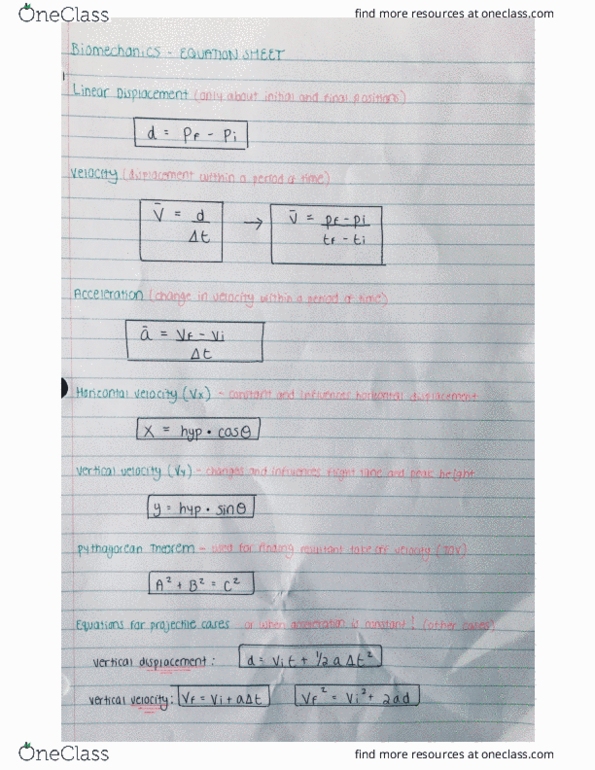 OneClass find more resources at oneclass.com
Biomechanics - EQUATION SHEET
Linear Displacement (only about initial and final positions)
d = Pf - Pi
Velocity (displacement within a period of time)
V̄ = d/Δt → V̄ = pf-pi/tf-ti
Acceleration (change in velocity within a period of time)
ā = Vf - Vi/Δt
Horizontal velocity (Vx) - constant and influences horizontal displacement
X = hyp • cosθ
Vertical velocity (Vy) - changes and influences flight time and peak height
y = hyp • sinθ
Pythagorean Theorem - used for finding resultant take off velocity (TOV)
A² + B² = C²
Equations for projectile cases or when acceleration is constant! (other cases)
vertical displacement: d = Vit + 1/2 a Δt²
vertical velocity: Vf = Vi + aΔt Vf² = Vi² + 2ad
OneClass find more resources at oneclass.com